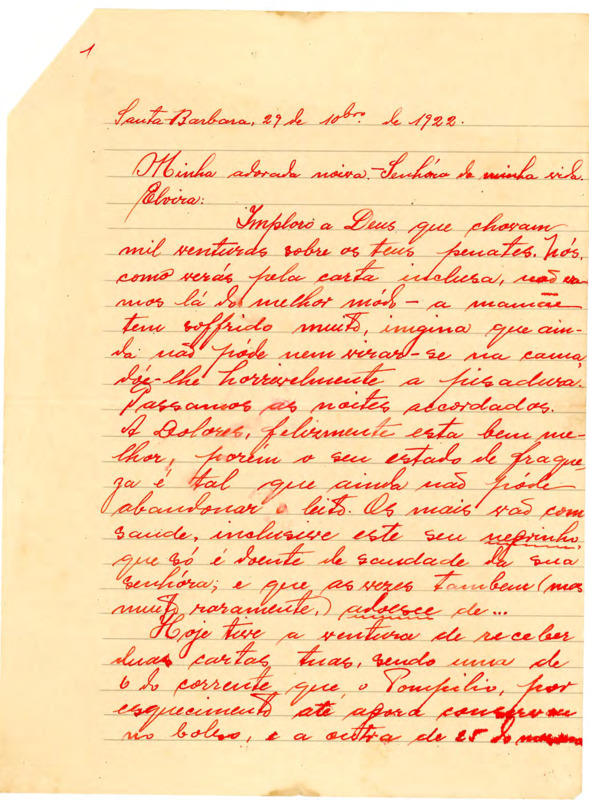 1
Santa Barbara, 29 de 10bro. de 1922.
Minha adorada noiva. - Senhóra da minha vida.
Elvira:
Imploro a Deus que chovam
mil venturas sobre os teus penates. Nós,
como verás pela carta inclusa, não va-
mos lá do melhor módo - a mamãe
tem soffrido muito, imgina que ain-
da não póde nem virar-se na cama,
dóe-lhe horrivelmente a pisadura.
Passamos as noites accordados.
A Dolores, felizmente esta bem me-
lhor, porem o seu estado de fraque-
za é tal que ainda não pode
abandonar o leito. Os mais vão com
saude, inclusive este seu negrinho,
que só é doente de saudade da sua
senhóra; e que as vezes tambem (mas
muito raramente,) adoesce de...
Hoje tive a ventura de receber
duas cartas tuas, sendo uma de
6 do corrente que o Pompilio, por
esquecimento até agora conservou
no bolso, e a outra de 25 do mesmo